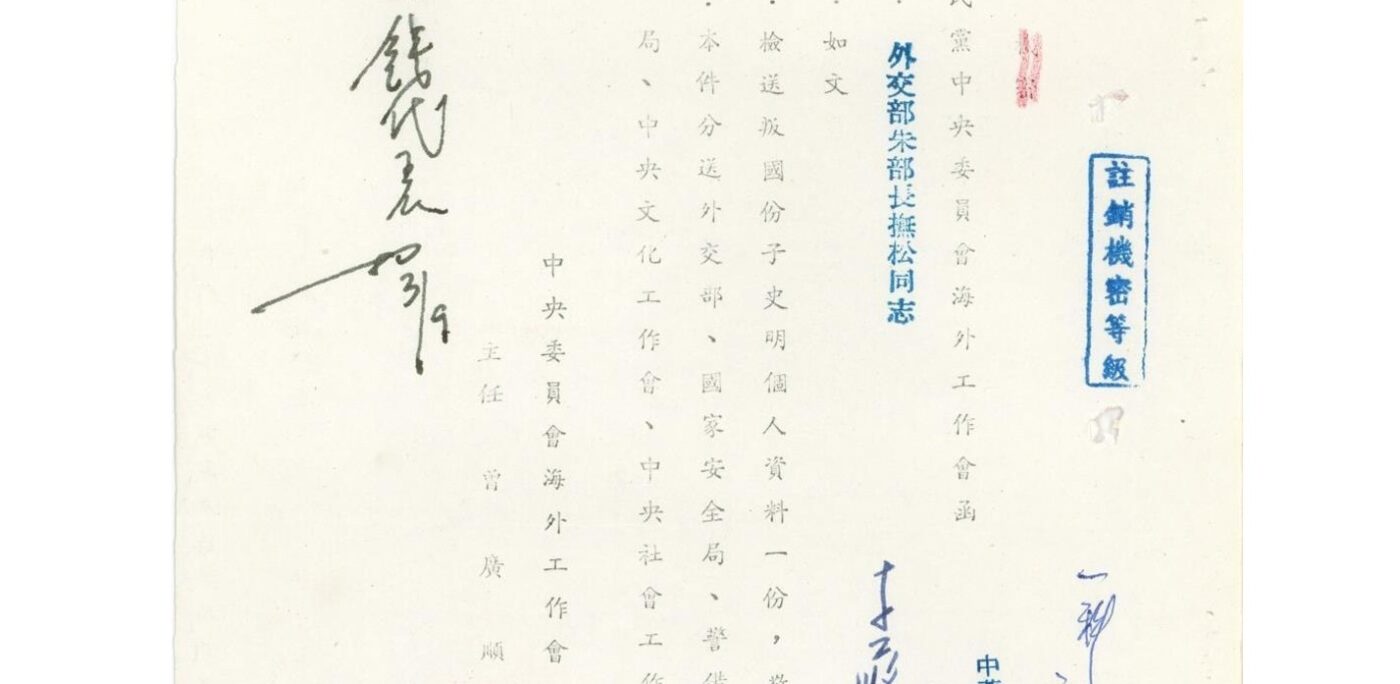 註銷機密等級
一科
民黨中央委員會海外工作會函
中華
外交部朱部長撫松同志
如文
檢送叛國份子史明個人資料一份，
本件分送外交部、國家安全局、警備
局、中央文化工作會、中央社會工作
中央委員會海外工作會
主任曾廣順
錢代表
3/9